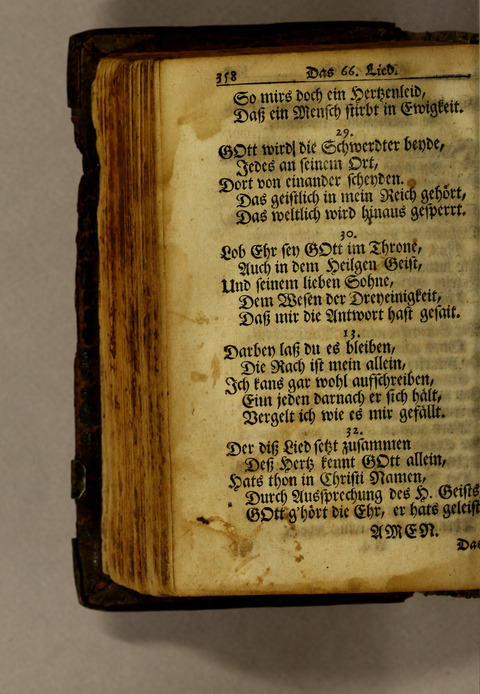 358 Das 66. Lied.
So mirs doch ein Hertzenleid,
Daß ein Mensch stirbt in Ewigkeit.
29.
GOtt wird die Schwerdter beyde,
Jedes an seinem Ort,
Dort von einander scheyden.
Das geistlich in mein Reich gehört,
Das weltlich wird hinaus gesperrt.
30.
Lob Ehr sey GOtt im Throne,
Auch in dem Heilgen Geist,
Und seinem lieben Sohne,
Dem Wesen der Dreyeinigkeit,
Daß mir die Antwort hast gesait.
13.
Darbey laß du es bleiben,
Die Rach ist mein allein,
Ich kans gar wohl aufschreiben,
Eim jeden darnach er sich hält,
Vergelt ich wie es mir gefällt.
32.
Der diß Lied setzt zusammen
Deß Hertz kennt GOtt allein,
Hats thon in Christi Namen,
Durch Aussprechung des H. Geists
GOtt g'hört die Ehr, er hats geleist
AMEN.
Das